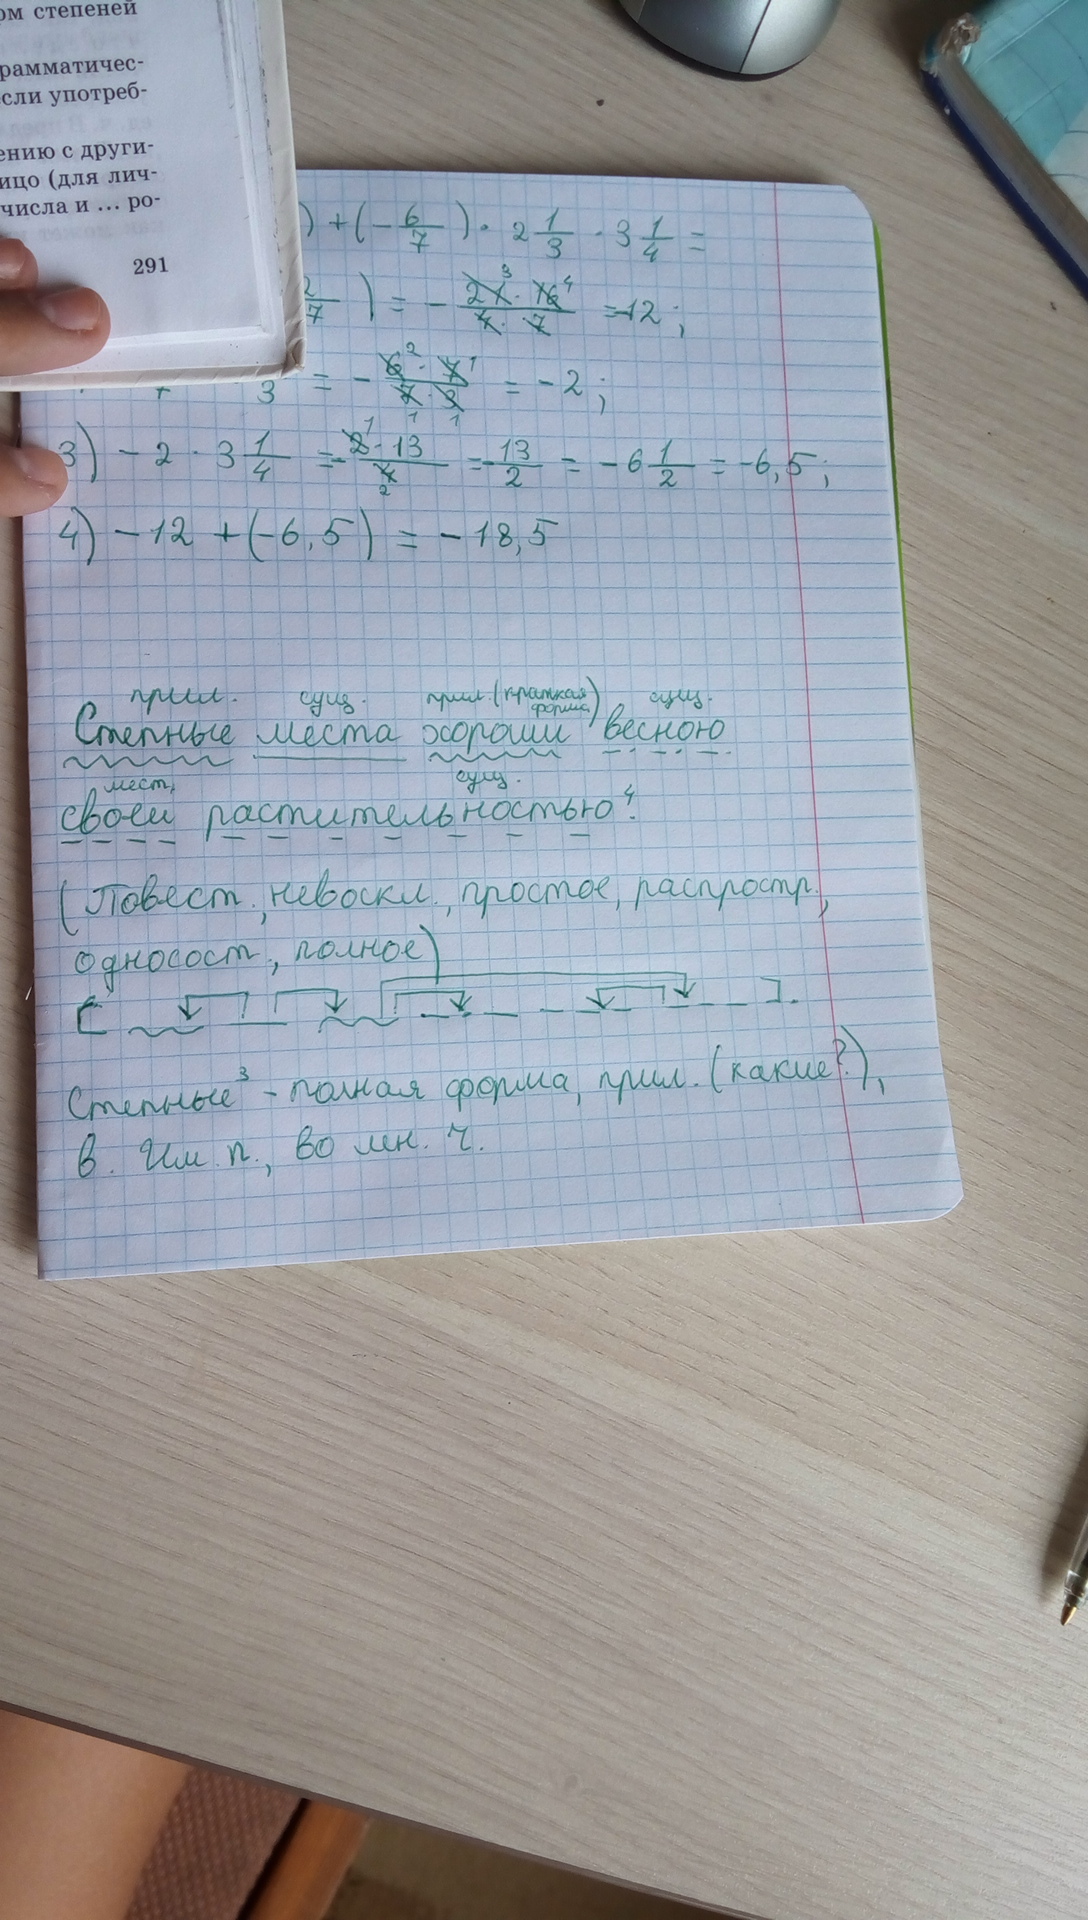 ом степеней
рамматичес-
если употреб-
ению с други-
ицо (для лич-
числа и ... ро-
291
) + (- 6/7) · 2 1/3 · 3 1/4 =
2/7) = - 21³ · 16⁴ / 4 · 7 = -12;
7 3 = - 6² · 7¹ / 7₁ · 3₁ = -2;
3) - 2 · 3 1/4 = - 2¹ · 13 / 4₂ = - 13/2 = - 6 1/2 = -6,5;
4) - 12 + (-6,5) = - 18,5
прил. сущ. прил. (краткая форма) сущ.
Степные места хороши весною
мест. сущ.
своей растительностью⁴.
(Повест., невоскл., простое, распростр.,
односост., полное)
[ ].
Степные³ - полная форма, прил. (какие?),
в. Им. п., во мн. ч.